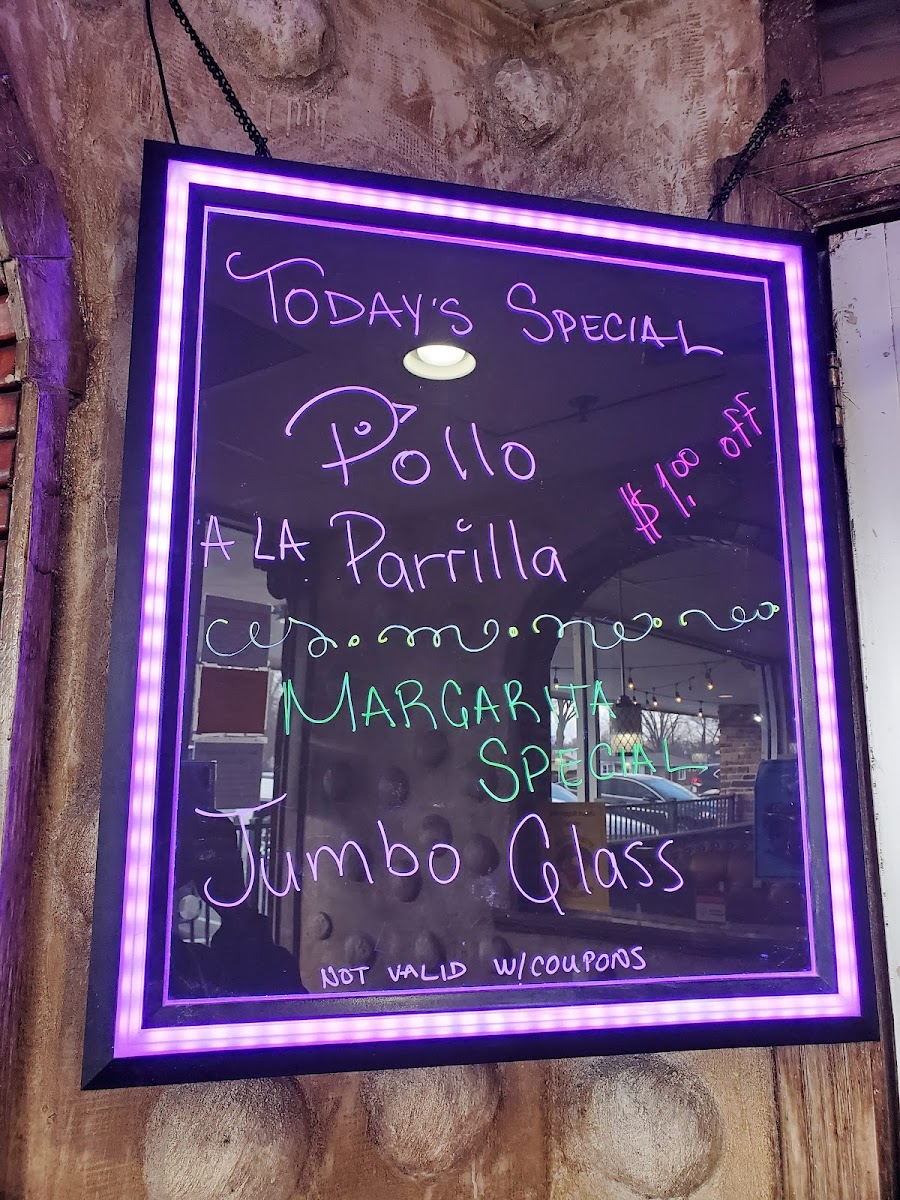 TODAY'S SPECIAL
Pollo
$1.00 off
A LA Parrilla
MARGARITA
SPECIAL
Jumbo Glass
NOT VALID W/COUPONS